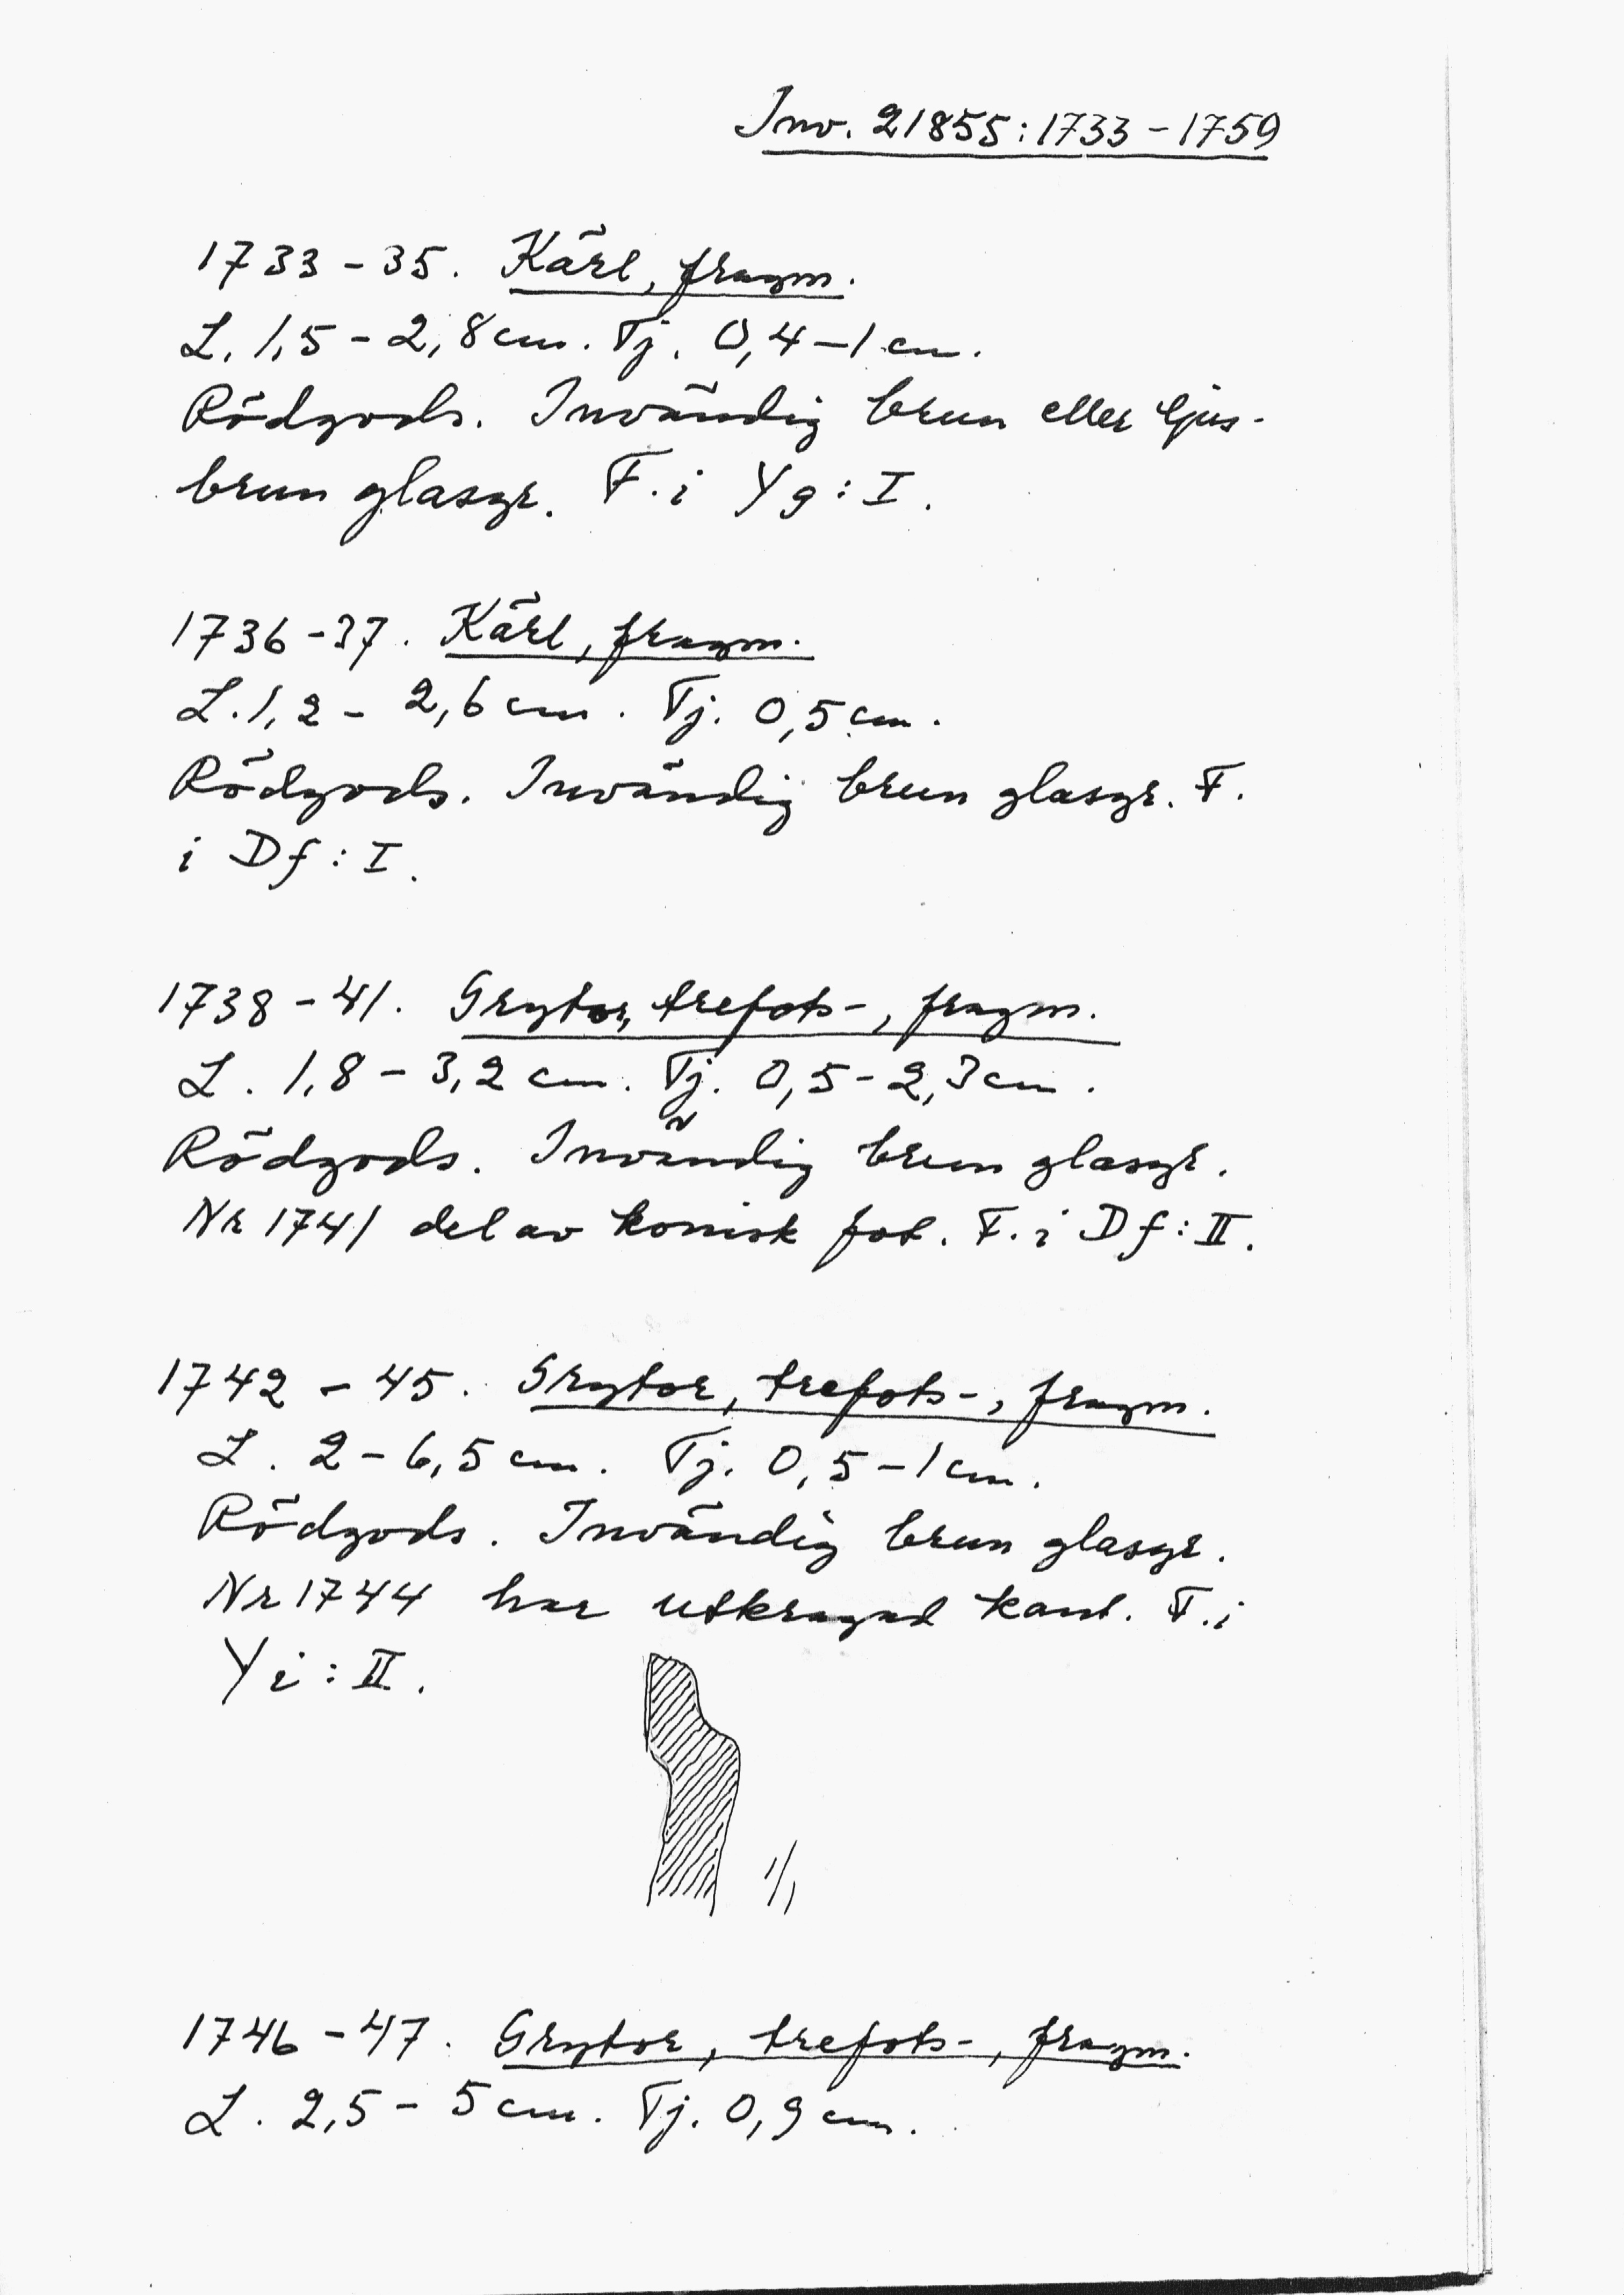 Inv. 21855:1733-1759
1733-35. Kärl, fragm.
L. 1,5-2,8 cm. Tj. 0,4-1 cm.
Rödgods. Invändig brun eller ljus-
brun glasyr. F. i Yg:I.
1736-37. Kärl, fragm.
L. 1,2-2,6 cm. Tj. 0,5 cm.
Rödgods. Invändig brun glasyr. F.
i Df:I.
1738-41. Grytor, trefots-, fragm.
L. 1,8-3,2 cm. Tj. 0,5-2,3 cm.
Rödgods. Invändig brun glasyr.
Nr 1741 del av konisk fot. F. i Df:II.
1742-45. Grytor, trefots-, fragm.
L. 2-6,5 cm. Tj. 0,5-1 cm.
Rödgods. Invändig brun glasyr.
Nr 1744 har utkragad kant. F. i
Yi:II.
1/1
1746-47. Grytor, trefots-, fragm.
L. 2,5-5 cm. Tj. 0,9 cm.